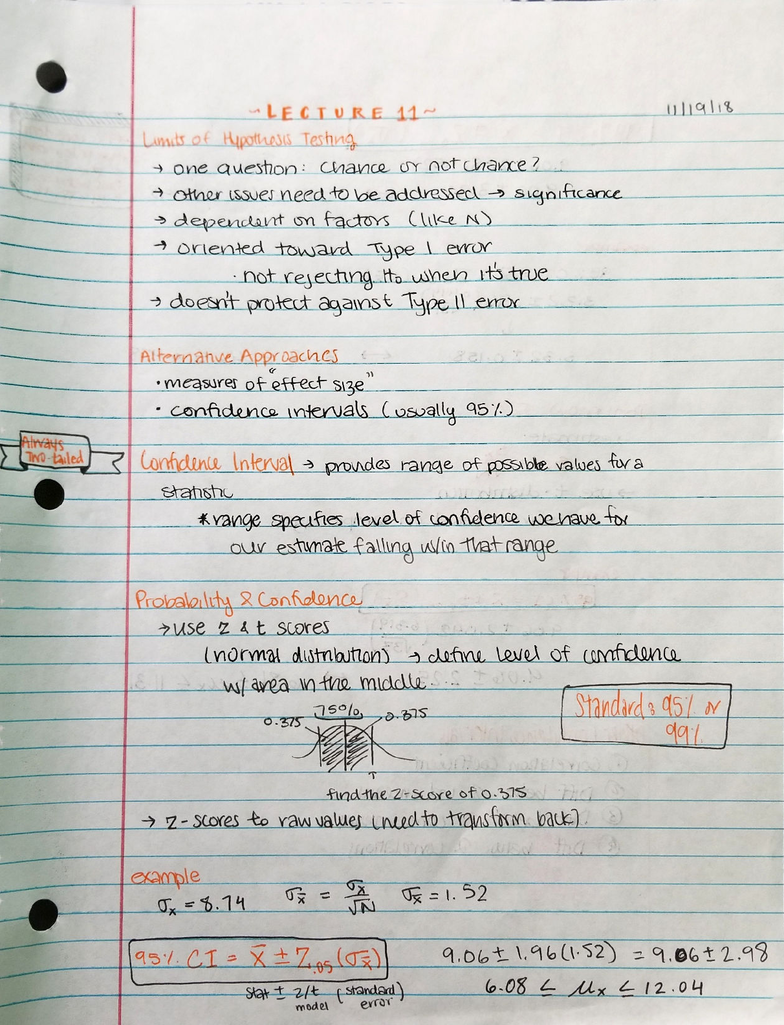 ~LECTURE 11~
11/19/18
Limits of Hypothesis Testing
→ one question: chance or not chance?
→ other issues need to be addressed → significance
→ dependent on factors (like N)
→ oriented toward Type I error
· not rejecting H₀ when it's true
→ doesn't protect against Type II error
Alternative Approaches
· measures of "effect size"
· confidence intervals (usually 95%)
Always
Two-tailed
Confidence Interval → provides range of possible values for a
statistic
*range specifies level of confidence we have for
our estimate falling w/in that range
Probability & Confidence
→ use z & t scores
(normal distribution) → define level of confidence
w/ area in the middle
Standard: 95% or
99%
75%
0.375 0.375
find the z-score of 0.375
→ z-scores to raw values (need to transform back)
example
σₓ = 8.74 σx̄ = σₓ/√N σx̄ = 1.52
95% CI = x̄ ± Z.05 (σx̄)
9.06 ± 1.96(1.52) = 9.06 ± 2.98
stat ± z/t (standard
model error)
6.08 ≤ μₓ ≤ 12.04